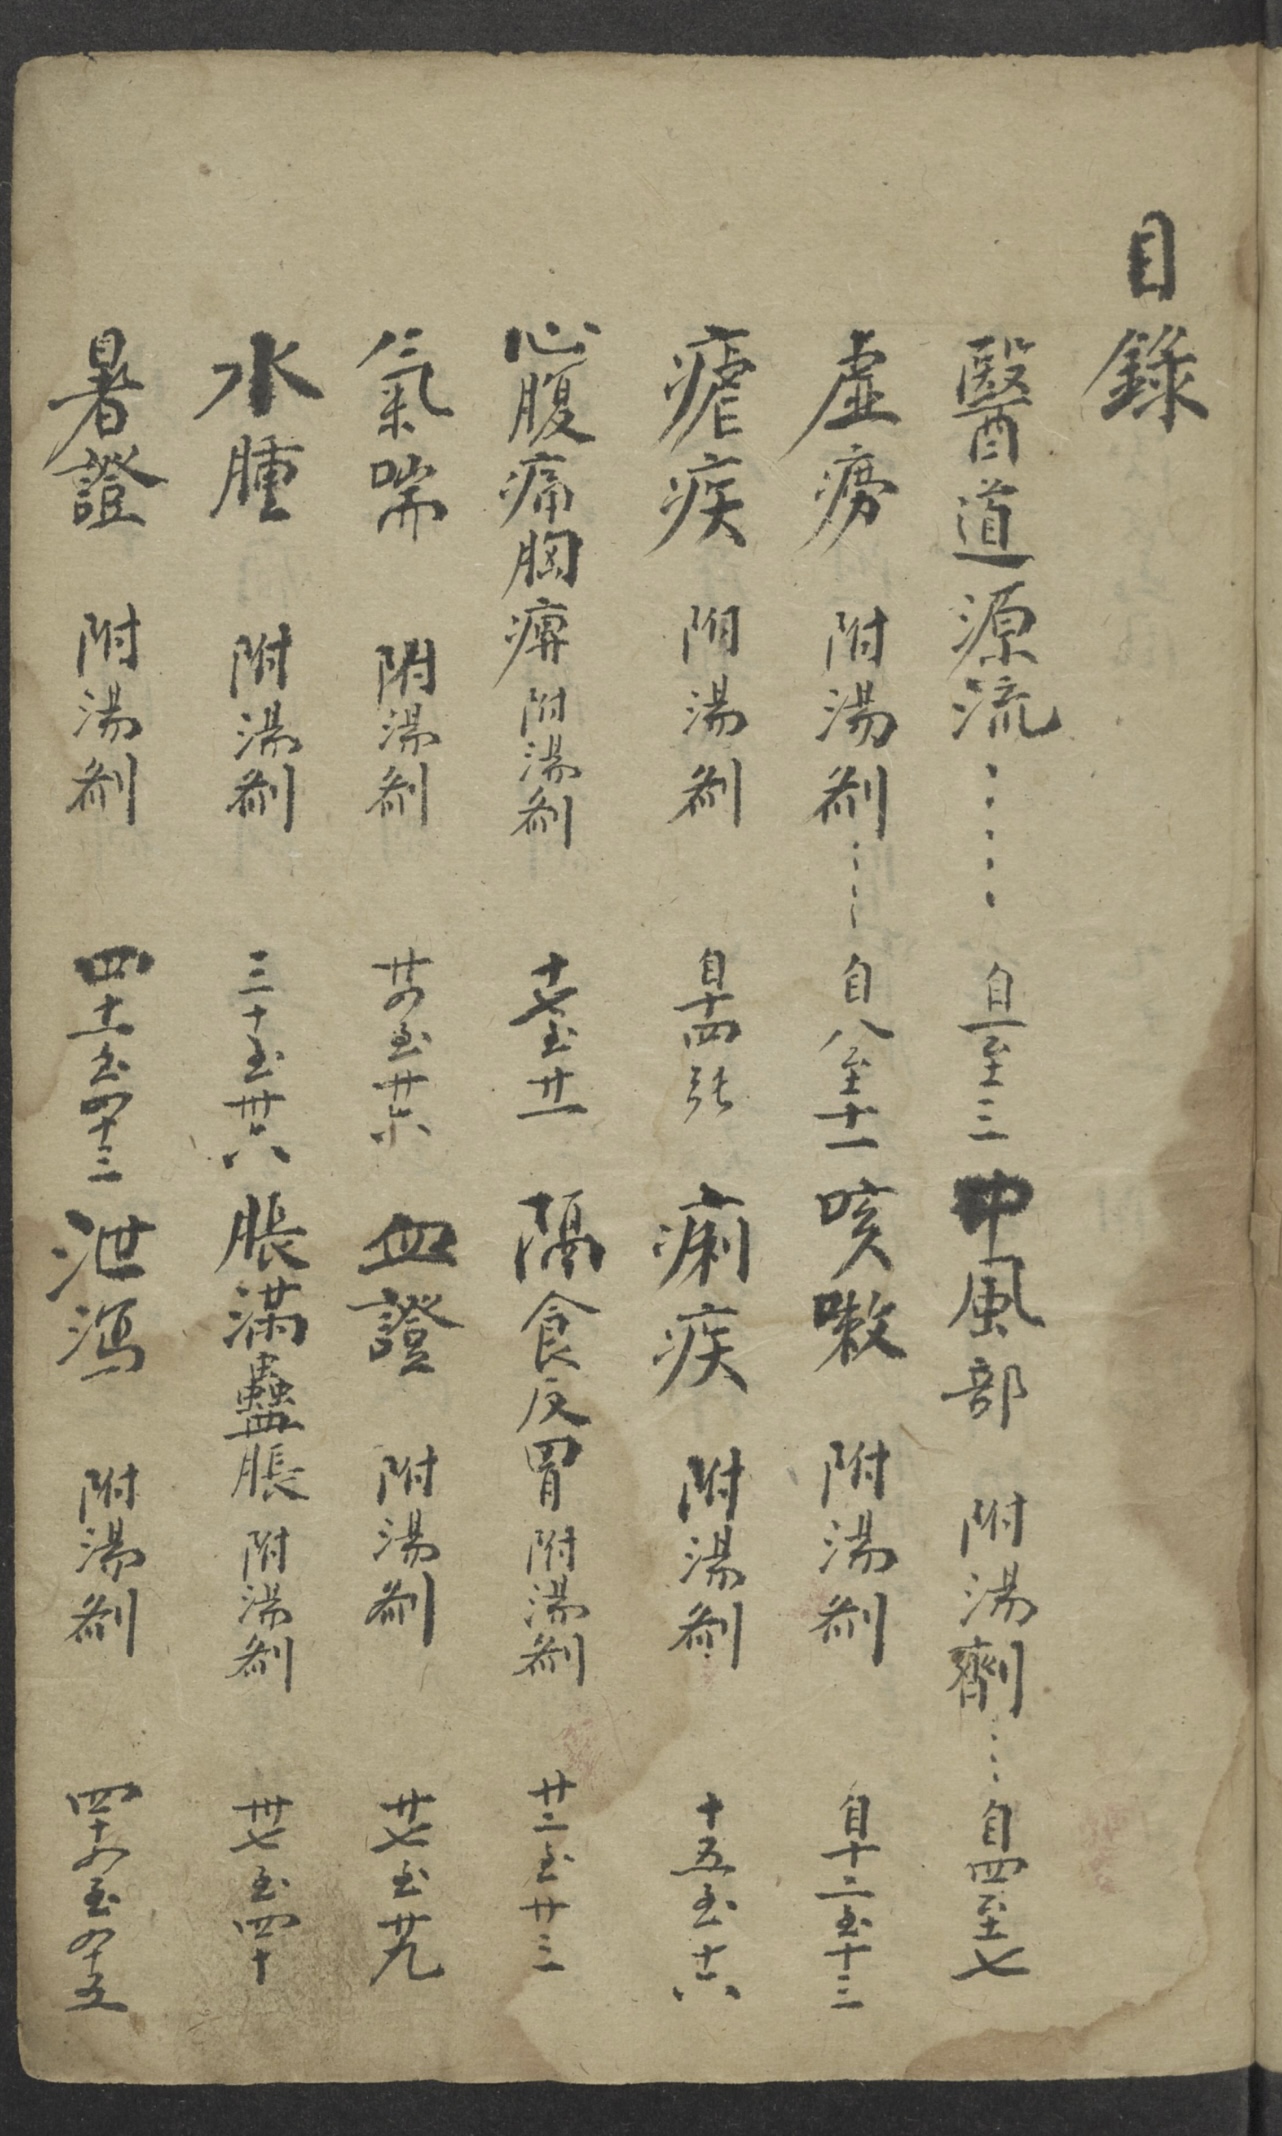 目錄
醫道源流 自一至三 中風部 附湯劑 自四至七
虛癆 附湯劑 自八至十一 咳嗽 附湯劑 自十二至十三
瘧疾 附湯劑 自十四張 痢疾 附湯劑 十五至十六
心腹痛胸痹 附湯劑 十七至廿一 隔食反胃 附湯劑 廿二至廿三
氣喘 附湯劑 廿四至廿六 血證 附湯劑 廿七至廿九
水腫 附湯劑 三十至卅六 脹滿蠱脹 附湯劑 卅七至四十
暑證 附湯劑 四十一至四十三 泄瀉 附湯劑 四十四至四十五